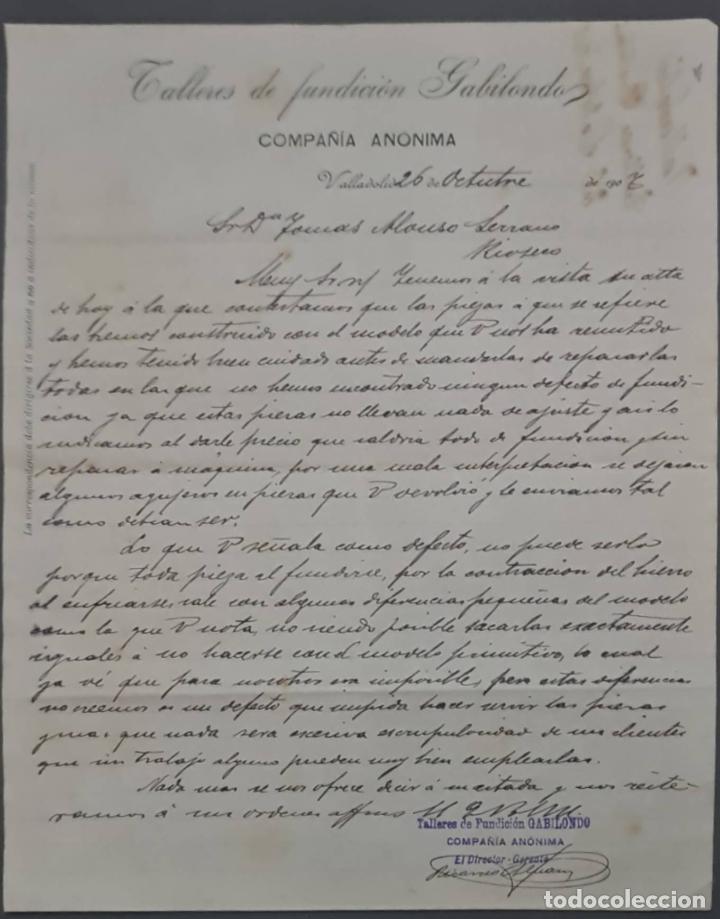 Talleres de fundición Gabilondo
COMPAÑÍA ANÓNIMA
Valladolid 26 de Octubre de 1907
Sr Dn Tomas Alonso Serrano
Rioseco
Muy Sr nr/ Tenemos á la vista su atta
de hoy á la que contestamos que las piezas á que se refiere
las hemos construido con el modelo que V nos ha remitido
y hemos tenido buen cuidado antes de mandarlas de repararlas
todas en las que no hemos encontrado ningun defecto de fundi-
cion ya que estas piezas no llevan nada de ajuste y asi lo
indicamos al darle precio que saldria todo de fundicion y sin
reparar á máquina, por una mala interpretacion se dejaron
algunos agujeros en piezas que V devolvió y le enviamos tal
como debian ser.
Lo que V señala como defecto, no puede serlo
porque toda pieza al fundirse, por la contraccion del hierro
al enfriarse, sale con algunas diferencias pequeñas del modelo
como la que V nota, no siendo posible sacarlas exactamente
iguales á no hacerse con el modelo primitivo, lo cual
ya vé que para nosotros era imposible, pero estas diferencias
no creemos es un defecto que impida hacer servir las piezas
y mas que nada sera excesiva escrupulosidad de sus clientes
que sin trabajo alguno pueden muy bien emplearlas.
Nada mas se nos ofrece decir á su citada y nos reite-
ramos á sus ordenes affmos
Talleres de Fundición GABILONDO
COMPAÑÍA ANÓNIMA
El Director-Gerente
La correspondencia debe dirigirse á la Sociedad y no á individuos de la misma
todocoleccion